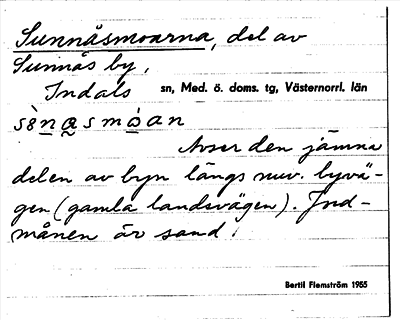 Sunnåsmoarna, del av
Sunnås by,
Indals sn, Med. ö. doms. tg, Västernorrl. län
Avser den jämna
delen av byn längs nuv. byvä-
gen (gamla landsvägen). Jord-
månen är sand.
Bertil Flemström 1955